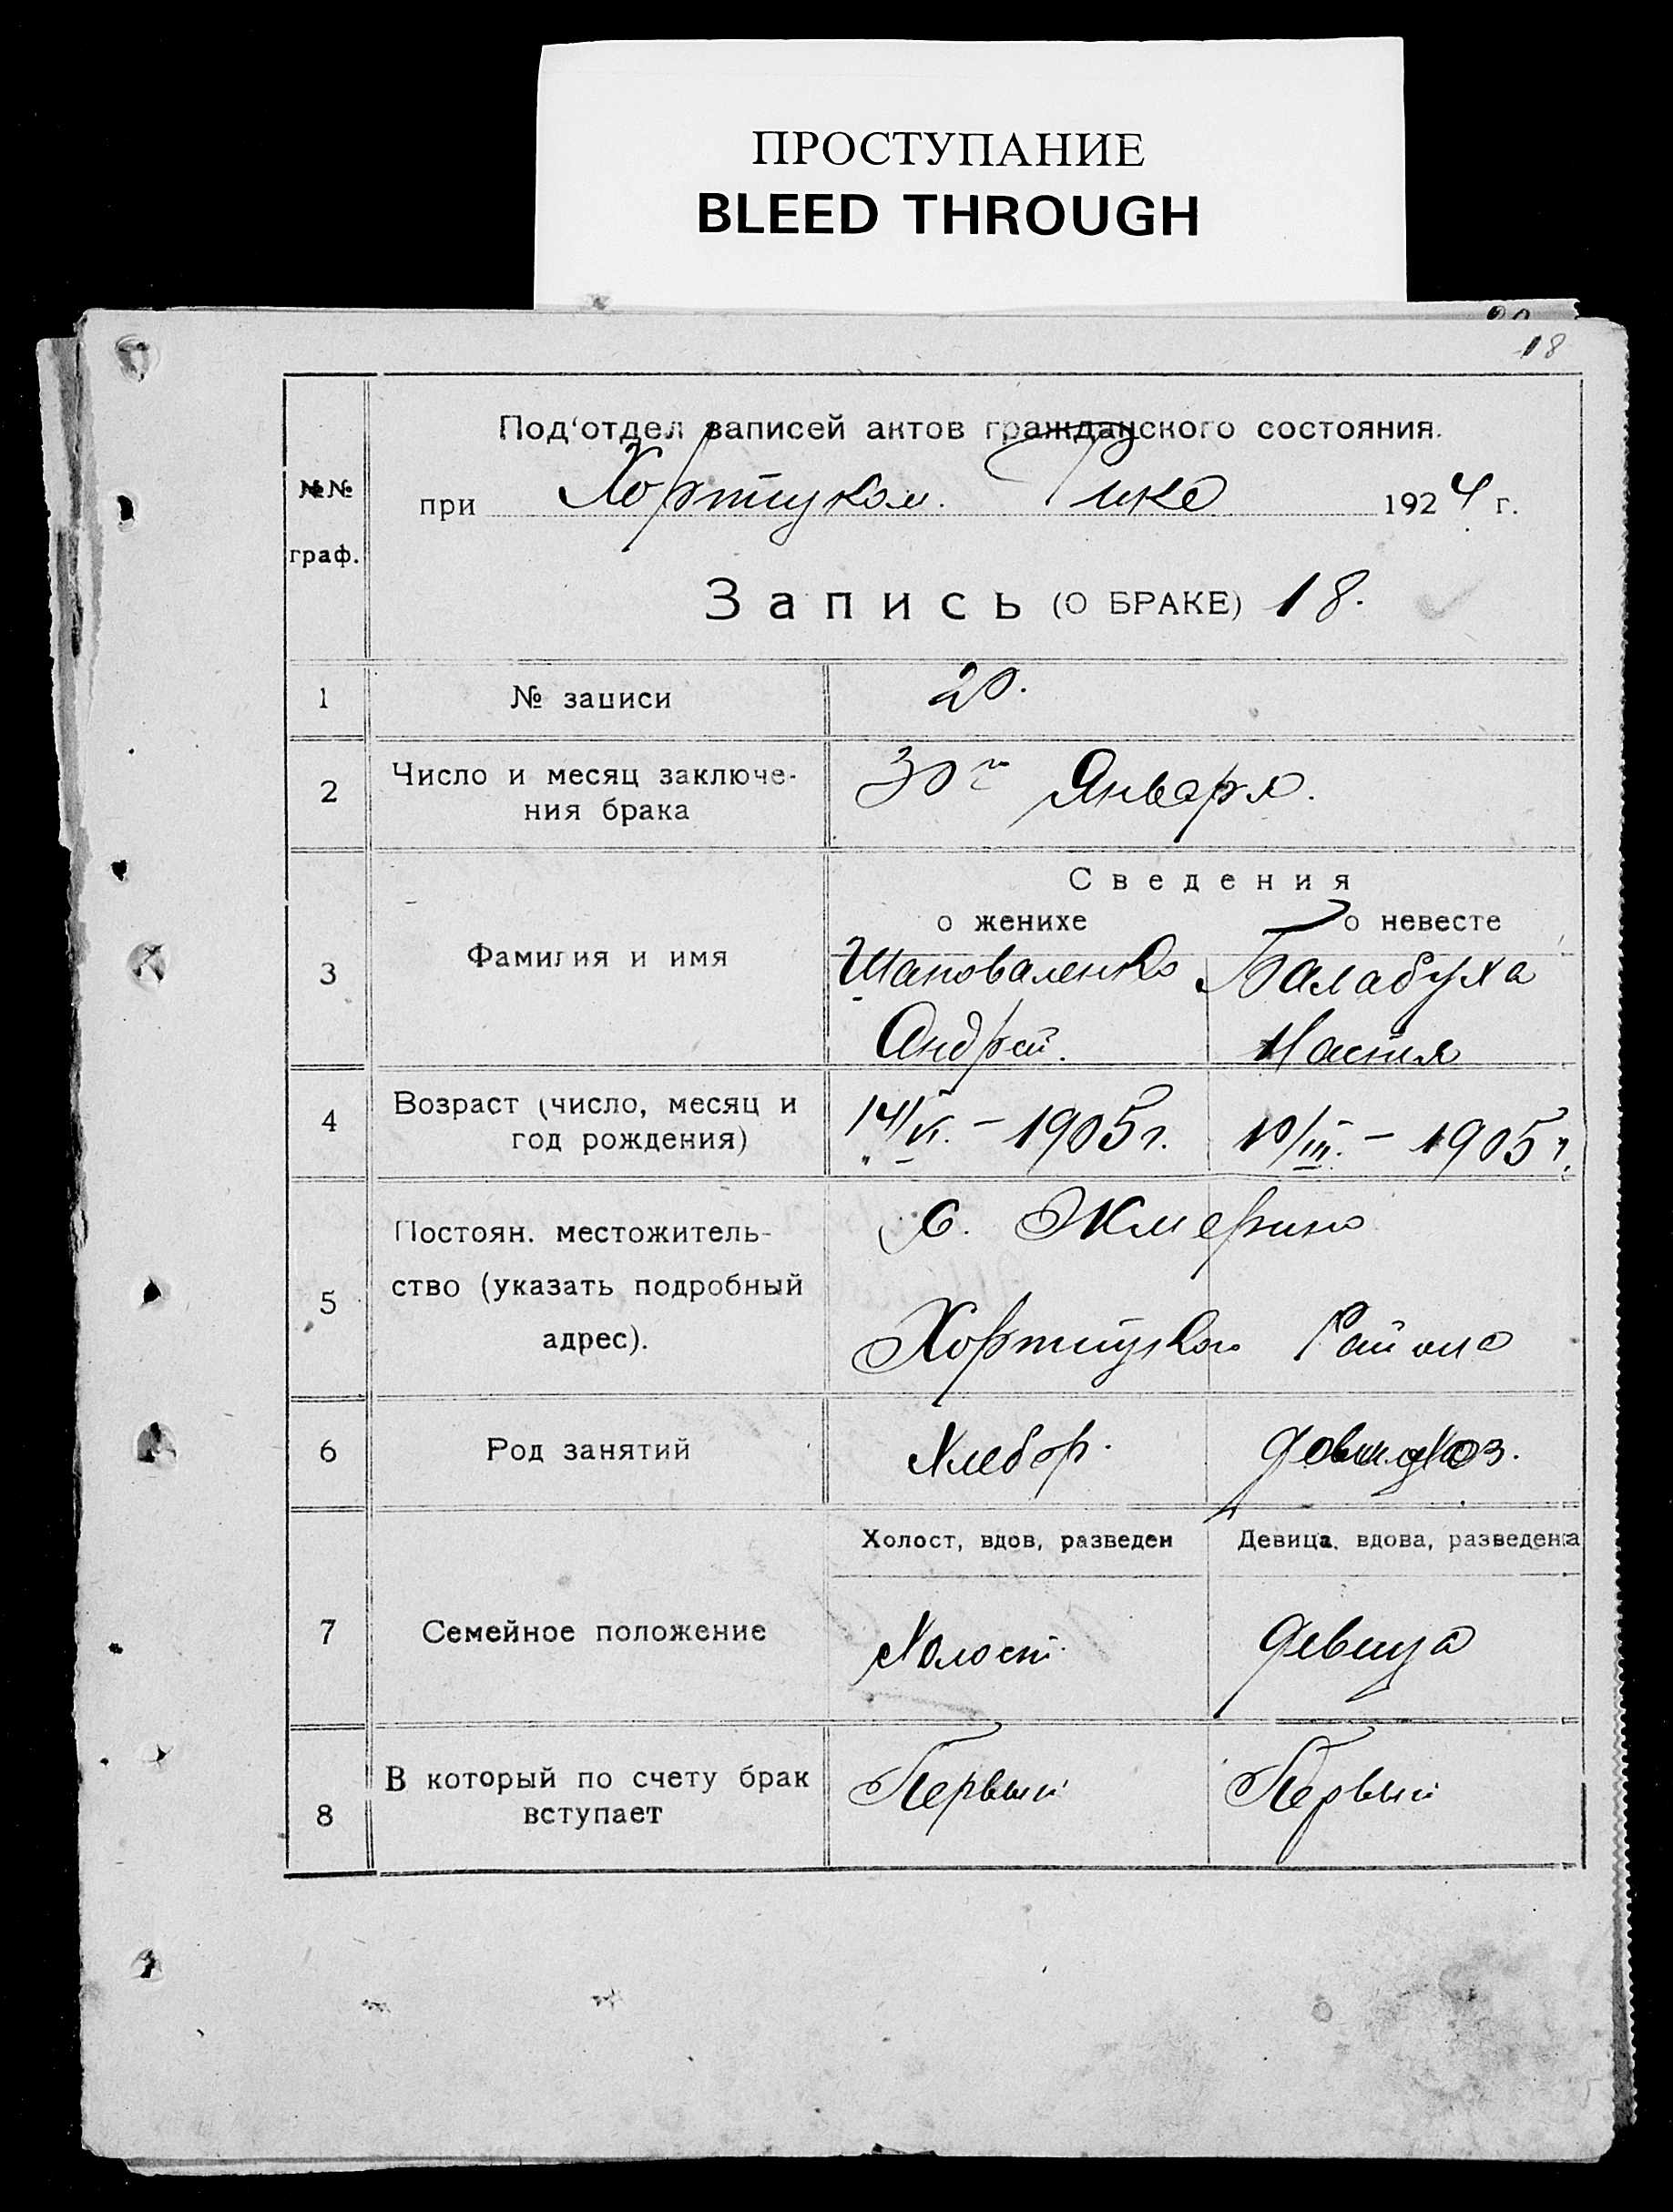 ПРОСТУПАНИЕ
BLEED THROUGH
20
18
№№ граф.
Под‘отдел записей актов гражданского состояния.
при Хортицком Рике 1924 г.
Запись (О БРАКЕ) 18.
1 № записи 20.
2 Число и месяц заключе-
ния брака 30го Января.
Сведения
о женихе о невесте
3 Фамилия и имя Шаповаленко Балабуха
Андрей. Настя
4 Возраст (число, месяц и
год рождения) 14/VI. – 1905 г. 10/III. – 1905 г.
5 Постоян. местожитель-
ство (указать подробный
адрес).
с. Жмерино
Хортицкого Района
6 Род занятий Хлебор. домохоз.
Холост, вдов, разведен Девица, вдова, разведена
7 Семейное положение Холост Девица
8 В который по счету брак
вступает Первый Первый